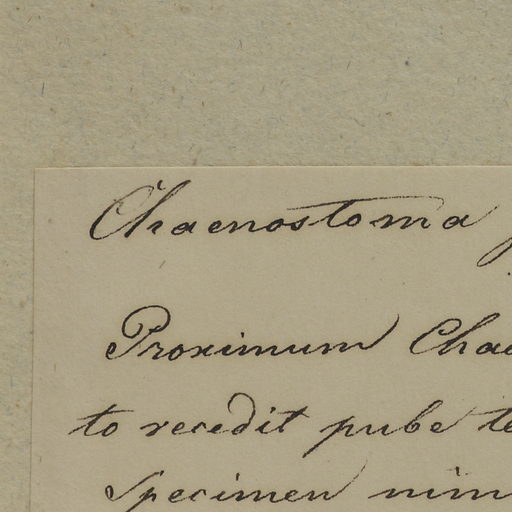 Chaenostoma
Proximum Chae
to recedit pube te
Specimen nim